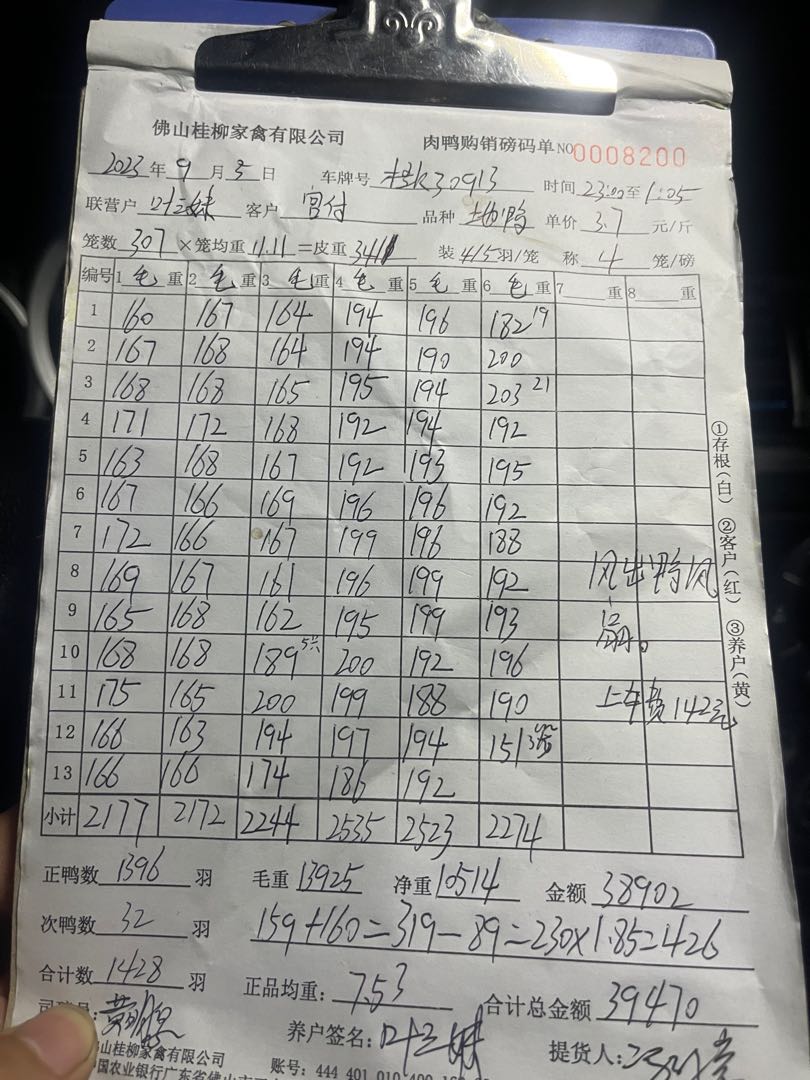 佛山桂柳家禽有限公司 肉鸭购销磅码单 NO 0008200
2023年9月3日 车牌号 30913 时间 23:00至1:05
联营户 叶三妹 客户 宫付 品种 单价 3.7 元/斤
笼数 307 ×笼均重 11.11 =皮重 3411 装 4/5 羽/笼 称 4 笼/磅
编号 1 毛 重 2 毛 重 3 毛 重 4 毛 重 5 毛 重 6 毛 重 7 重 8 重
1 160 167 164 194 196 182 19
2 167 168 164 194 190 200
3 168 168 165 195 194 203 21
4 171 172 168 192 194 192
5 163 168 167 192 193 195
6 167 166 169 196 196 192
7 172 166 167 199 196 188
8 169 167 161 196 199 192
9 165 168 162 195 199 193
10 168 168 189 5只 200 192 196
11 175 165 200 199 188 190
12 166 163 194 197 194 151 3笼
13 166 166 174 186 192
小计 2177 2172 2244 2535 2523 2274
上车费142元
①存根(白) ②客户(红) ③养户(黄)
正鸭数 1396 羽 毛重 13925 净重 10514 金额 38902
次鸭数 32 羽 159+160=319-89=230×1.85=426
合计数 1428 羽 正品均重: 7.53 合计总金额 39470
养户签名: 叶三妹 提货人:
佛山桂柳家禽有限公司
中国农业银行广东省佛山市 账号: 444 401 010 400